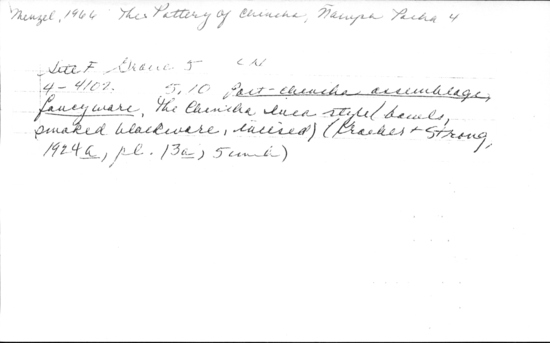 Menzel, 1966 The Pottery of Chincha, Ñawpa Pacha 4
Site F Grave 5
4-4107. 5,10 Post-Chincha assemblage,
fancyware, The Chincha Inca style (bowls,
smoked blackware, incised) (Kroeber & Strong,
1924a, pl. 13a, 5 umh)